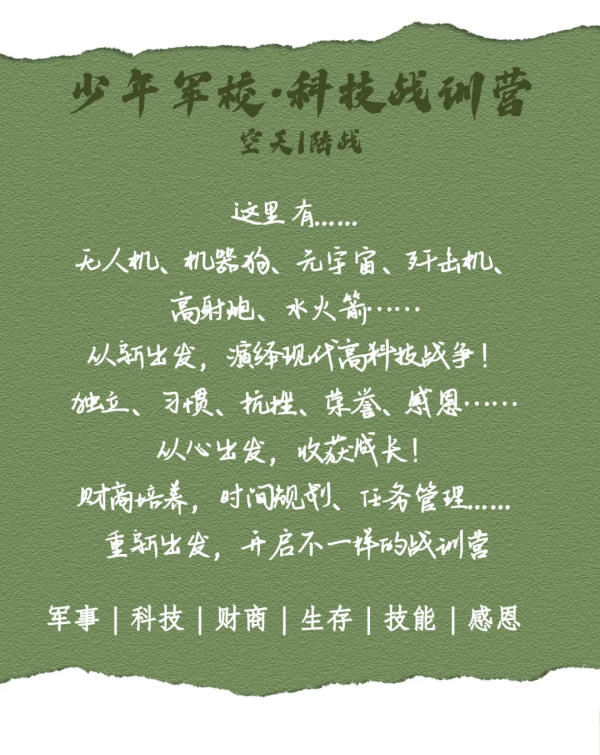 少年军校·科技战训营
空天|陆战
这里有......
无人机、机器狗、元宇宙、歼击机、
高射炮、水火箭……
从新出发，演绎现代高科技战争！
独立、习惯、抗挫、荣誉、感恩……
从心出发，收获成长！
财商培养，时间规划、任务管理......
重新出发，开启不一样的战训营
军事|科技|财商|生存|技能|感恩